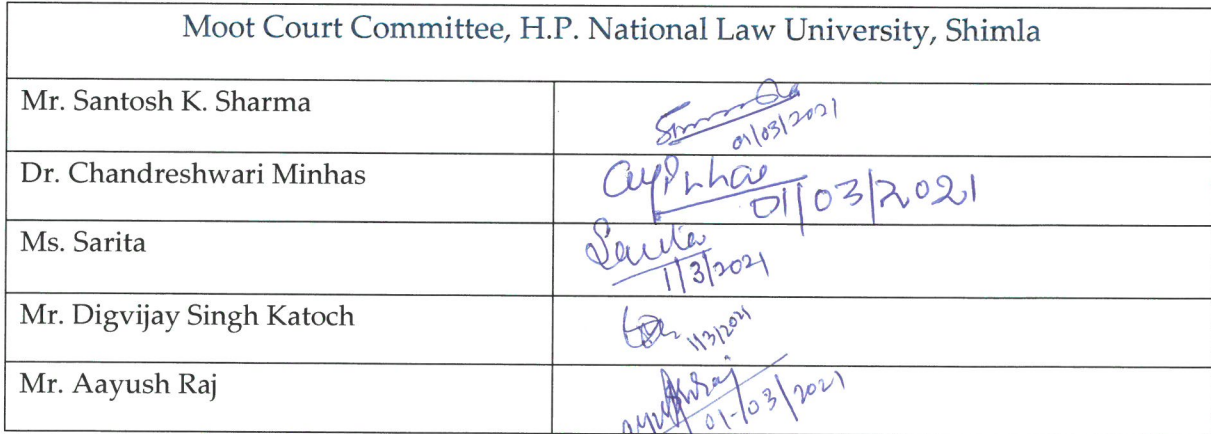 Moot Court Committee, H.P. National Law University, Shimla
Mr. Santosh K. Sharma
01/03/2021
Dr. Chandreshwari Minhas
01/03/2021
Ms. Sarita
Sarita
1/3/2021
Mr. Digvijay Singh Katoch
1/3/2021
Mr. Aayush Raj
01/03/2021